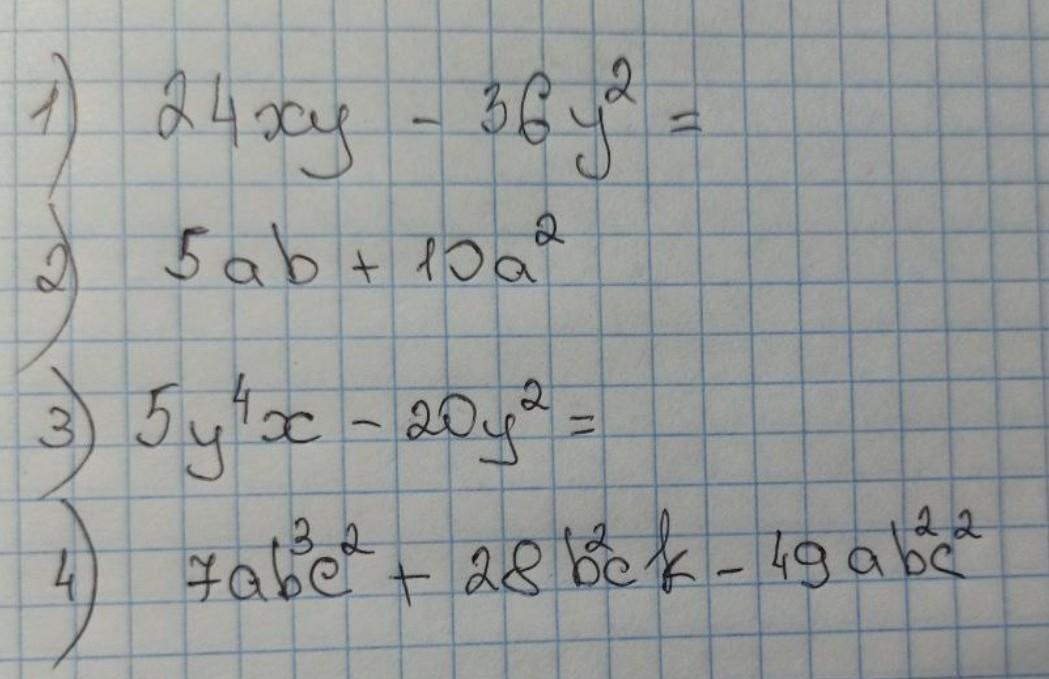 1) 24xy - 36y² =
2) 5ab + 10a²
3) 5y⁴x - 20y² =
4) 7ab³c² + 28b²ck - 49ab²c²